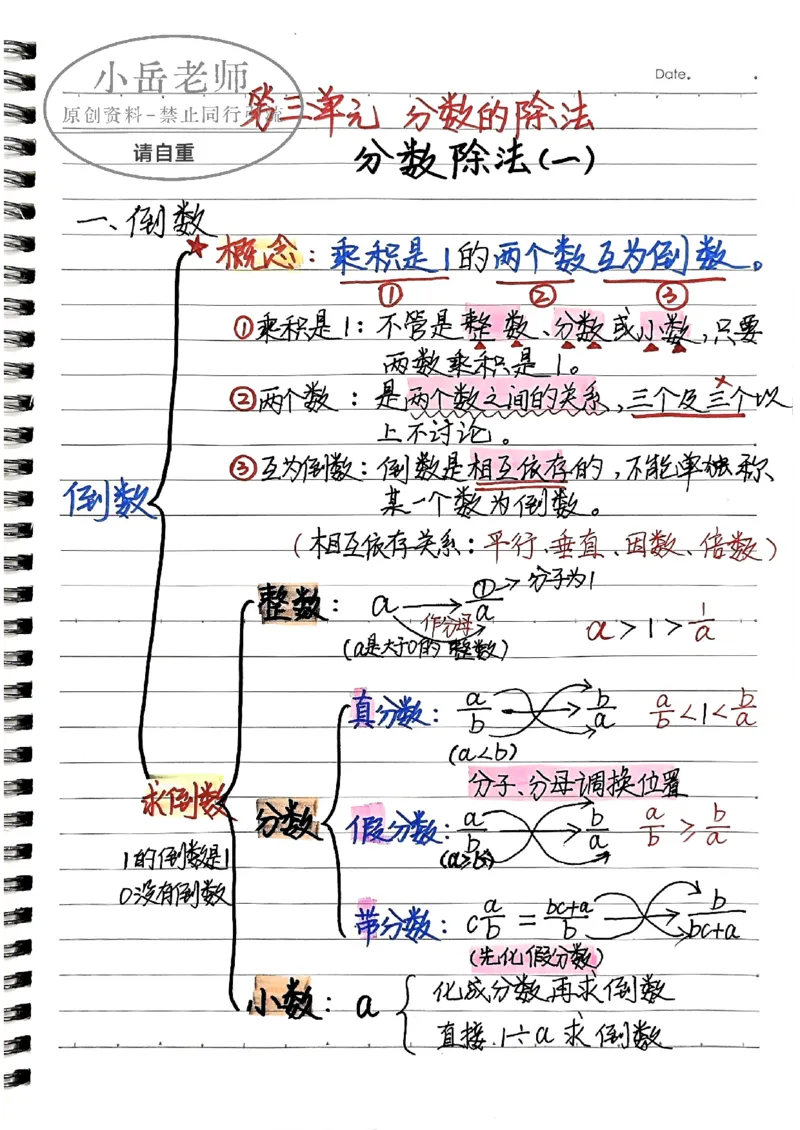 小岳老师
原创资料-禁止同行
请自重
Date.
第三单元 分数的除法
分数除法(一)
一、倒数
★概念：乘积是1的两个数互为倒数。
① ② ③
①乘积是1：不管是整数、分数或小数，只要
两数乘积是1。
②两个数：是两个数之间的关系，三个及三个以
上不讨论。
③互为倒数：倒数是相互依存的，不能单独称
某一个数为倒数。
倒数
(相互依存关系：平行、垂直、因数、倍数)
整数：a → ①/a → 分子为1
作分母
(a是大于0的整数)
a > 1 > 1/a
真分数：a/b → b/a a/b < 1 < b/a
(a<b)
分子、分母调换位置
求倒数
分数
假分数：a/b → b/a a/b ≥ b/a
(a≥b)
1的倒数是1
0没有倒数
带分数：c a/b = bc+a/b → b/bc+a
(先化假分数)
小数：a { 化成分数再求倒数
直接1÷a求倒数